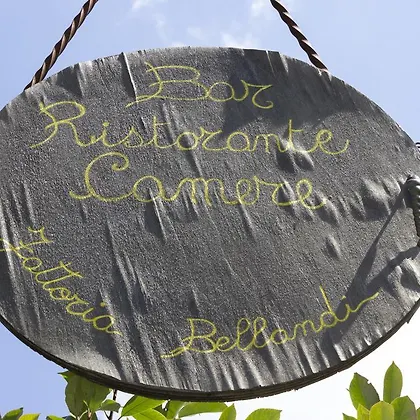 Bar
Ristorante
Camere
Fattoria
Bellandi